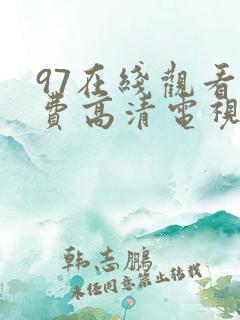 97在綫觀看
費高清電視
韩志鹏
未经同意禁止转载